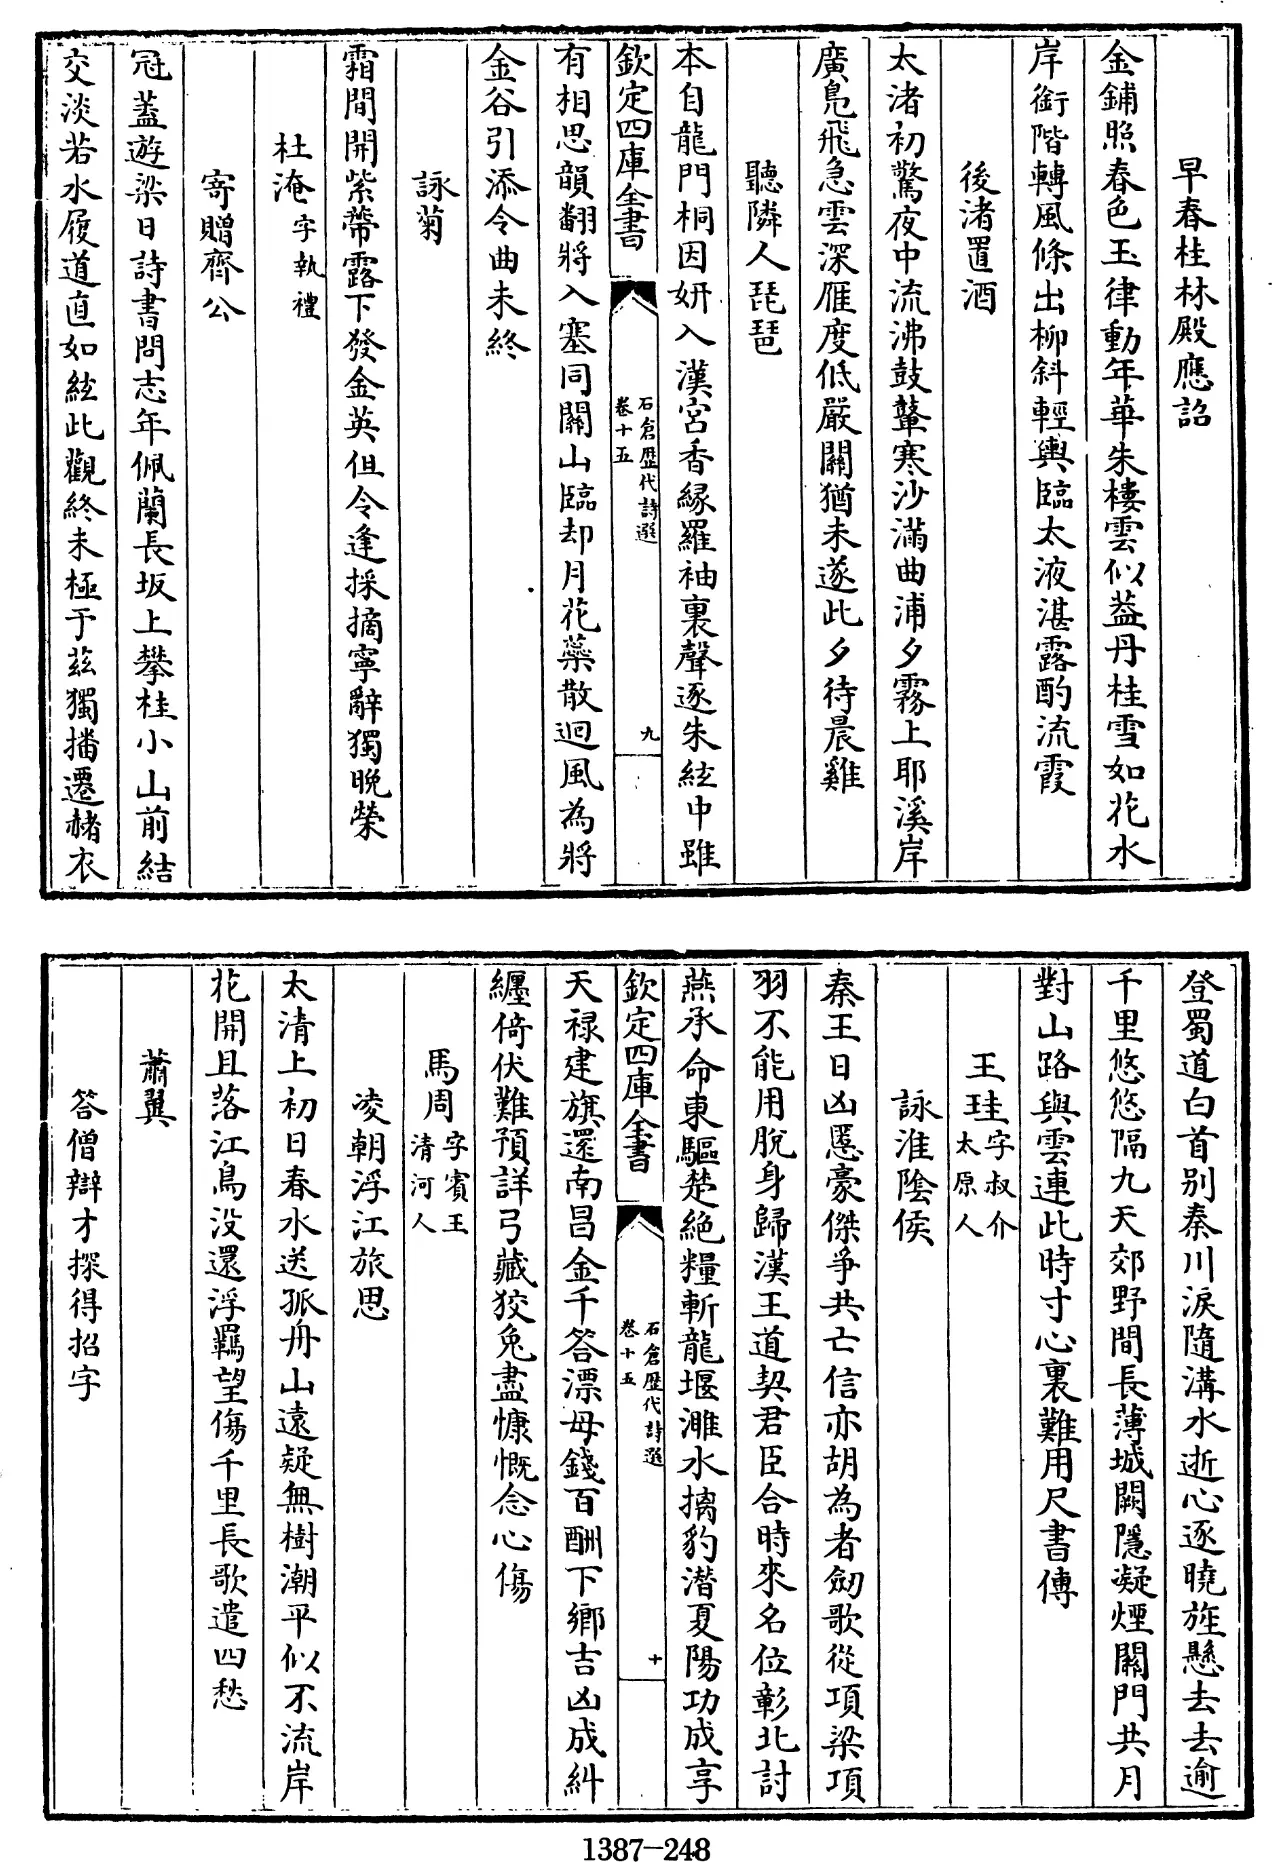 早春桂林殿應詔
金鋪照春色玉律動年華朱樓雲似葢丹桂雪如花水
岸銜階轉風條出柳斜輕輿臨太液湛露酌流霞
後渚置酒
太渚初驚夜中流沸鼓鼙寒沙滿曲浦夕霧上耶溪岸
廣鳧飛急雲深雁度低嚴關猶未遂此夕待晨雞
聽隣人琵琶
本自龍門桐因妍入漢宮香緣羅袖裏聲逐朱絃中雖
欽定四庫全書
石倉歴代詩選
卷十五
九
有相思韻翻將入塞同關山臨却月花蘂散廻風為將
金谷引添令曲未終
詠菊
霜間開紫蔕露下發金英但令逢採摘寧辭獨晚榮
杜淹字執禮
寄贈齊公
冠葢遊梁日詩書問志年佩蘭長坂上攀桂小山前結
交淡若水履道直如絃此觀終未極于兹獨播遷赭衣
登蜀道白首别秦川淚隨溝水逝心逐曉旌懸去去逾
千里悠悠隔九天郊野間長薄城闕隱凝煙關門共月
對山路與雲連此時寸心裏難用尺書傳
王珪字叔介
太原人
詠淮陰侯
秦王日凶慝豪傑爭共亡信亦胡為者劒歌從項梁項
羽不能用脫身歸漢王道契君臣合時來名位彰北討
燕承命東驅楚絕糧斬龍堰濰水擒豹潛夏陽功成享
欽定四庫全書
石倉歴代詩選
卷十五
十
天禄建旗還南昌金千答漂母錢百酬下鄉吉凶成糾
纒倚伏難預詳弓藏狡兔盡慷慨念心傷
馬周字賓王
清河人
凌朝浮江旅思
太清上初日春水送孤舟山遠疑無樹潮平似不流岸
花開且落江鳥没還浮羈望傷千里長歌遣四愁
蕭翼
答僧辯才探得招字
1387-248